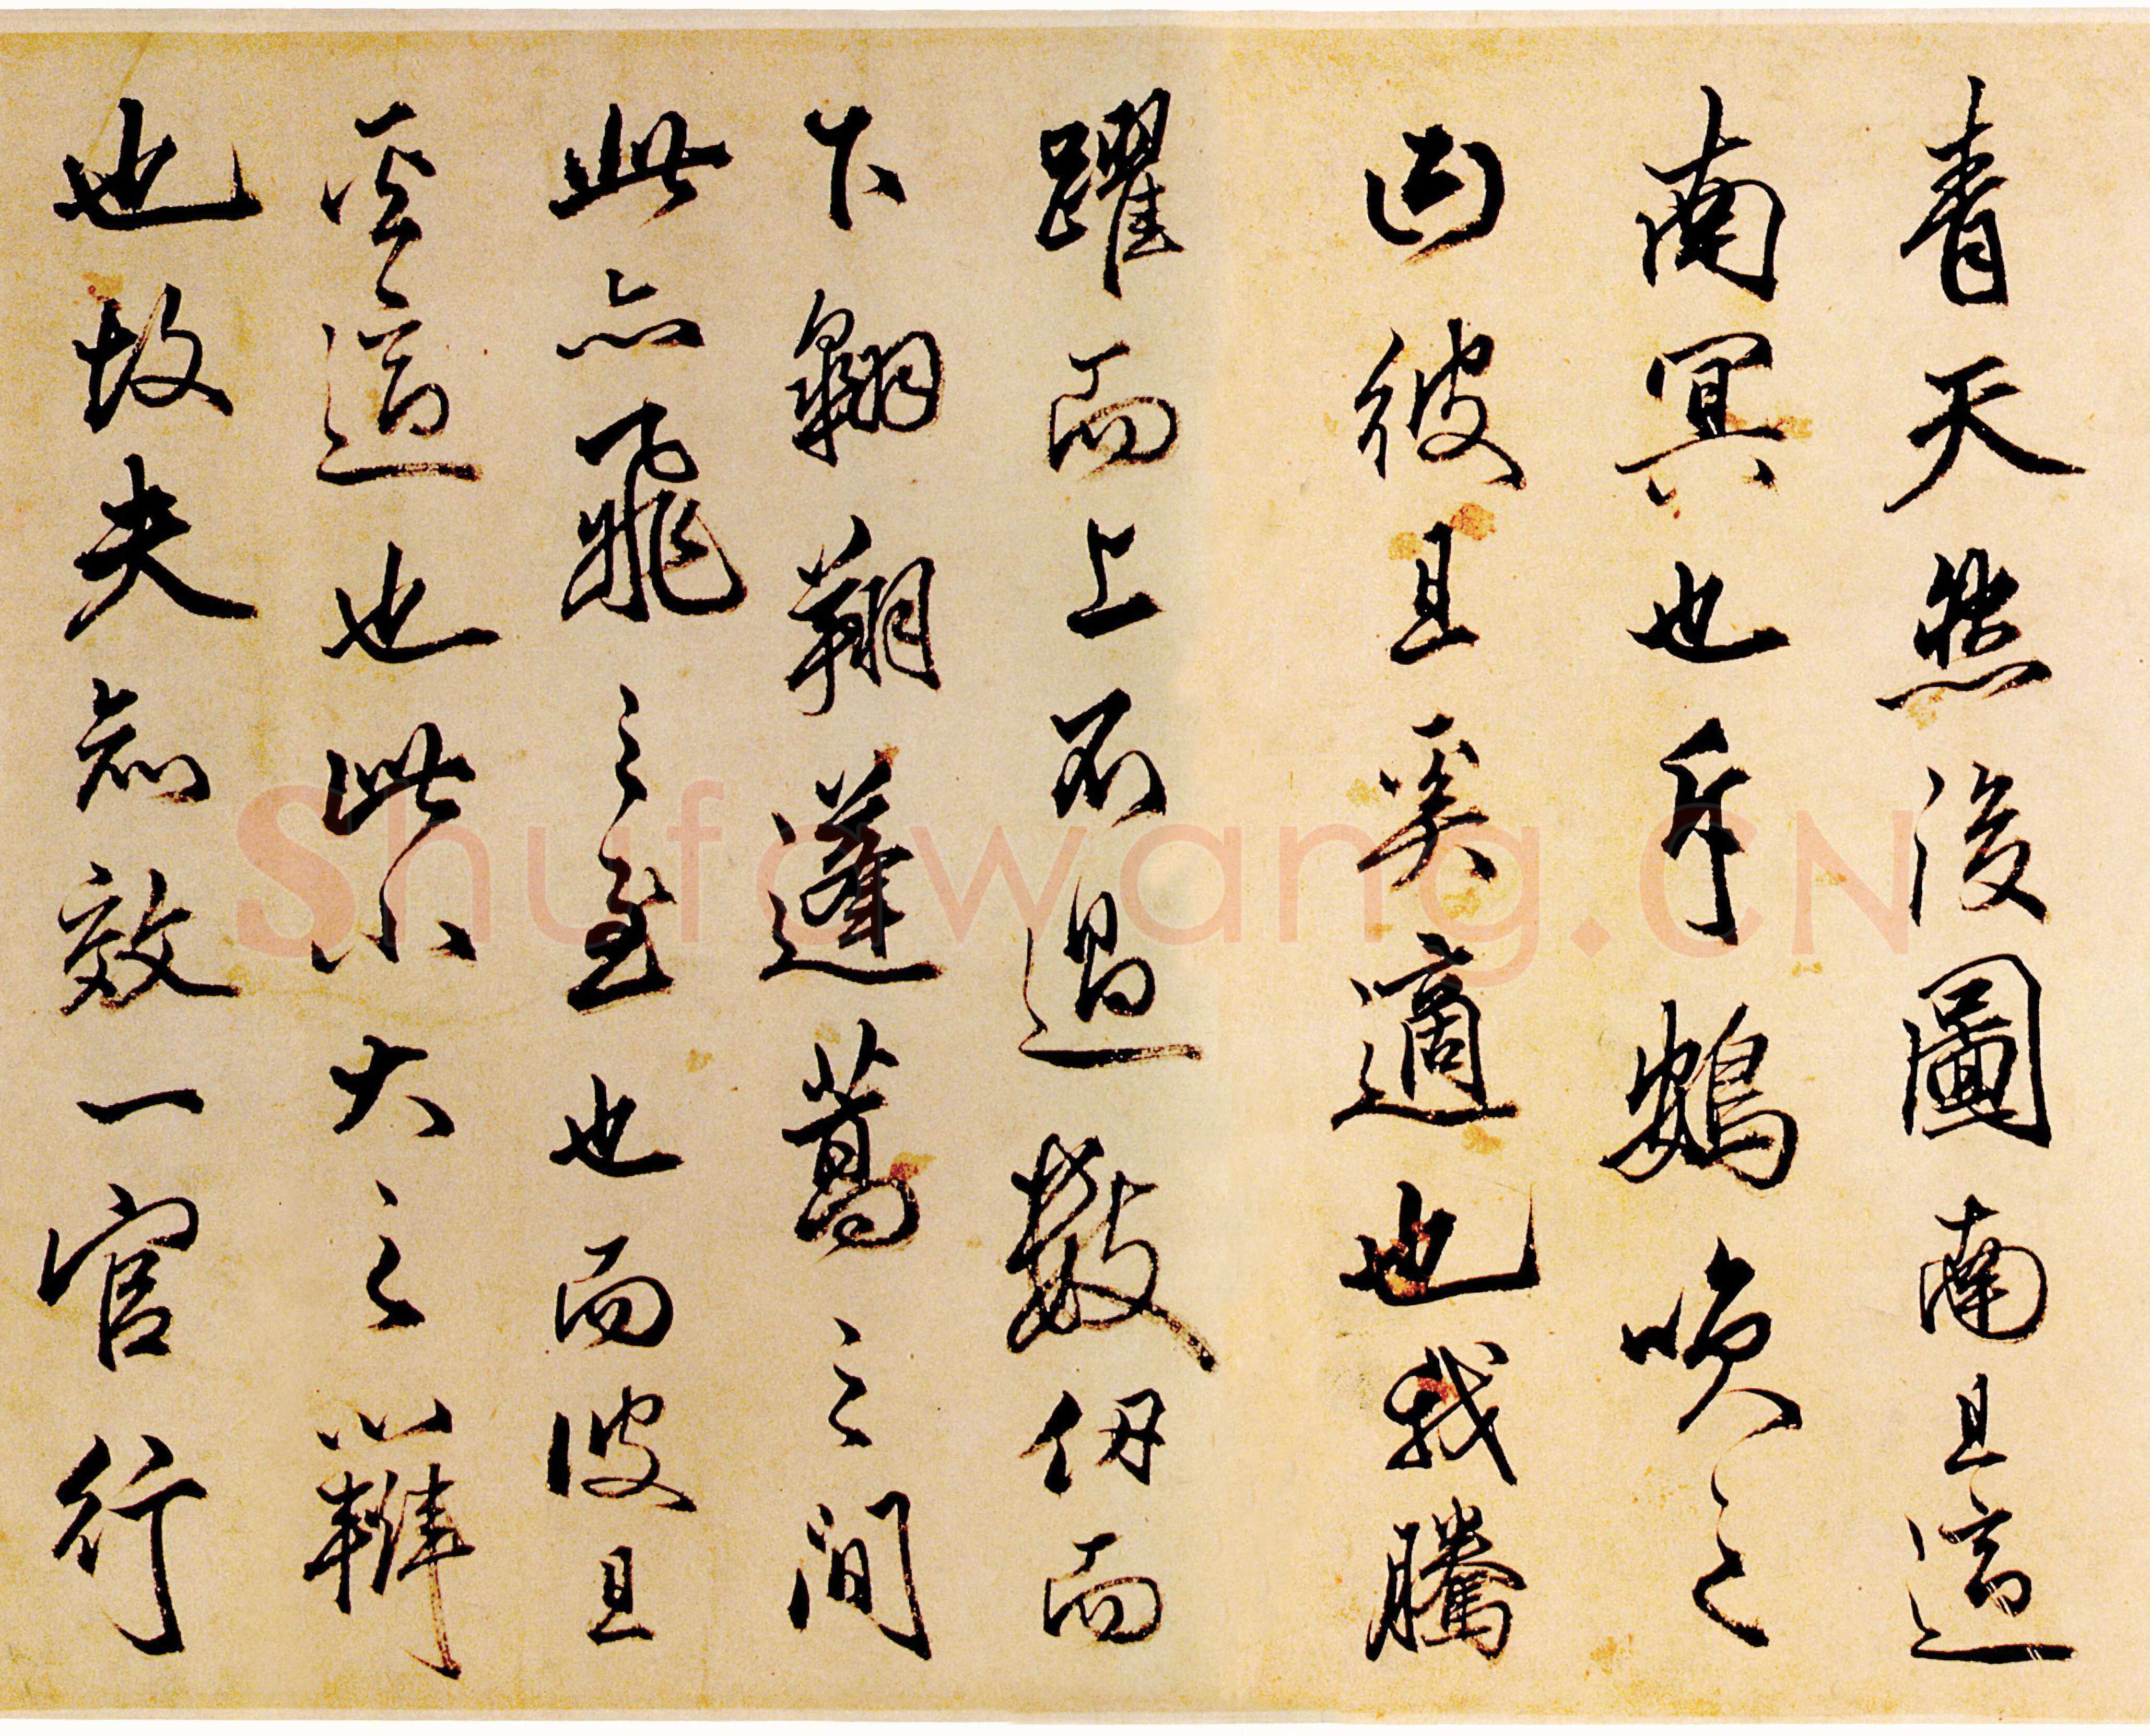 青天然後圖南且適
南冥也斥鴳咲之
曰彼且奚適也我騰
躍而上不過數仞而
下翱翔蓬蒿之間
此亦飛之至也而彼且
奚適也此小大之辯
也故夫知效一官行
Shufawang.CN